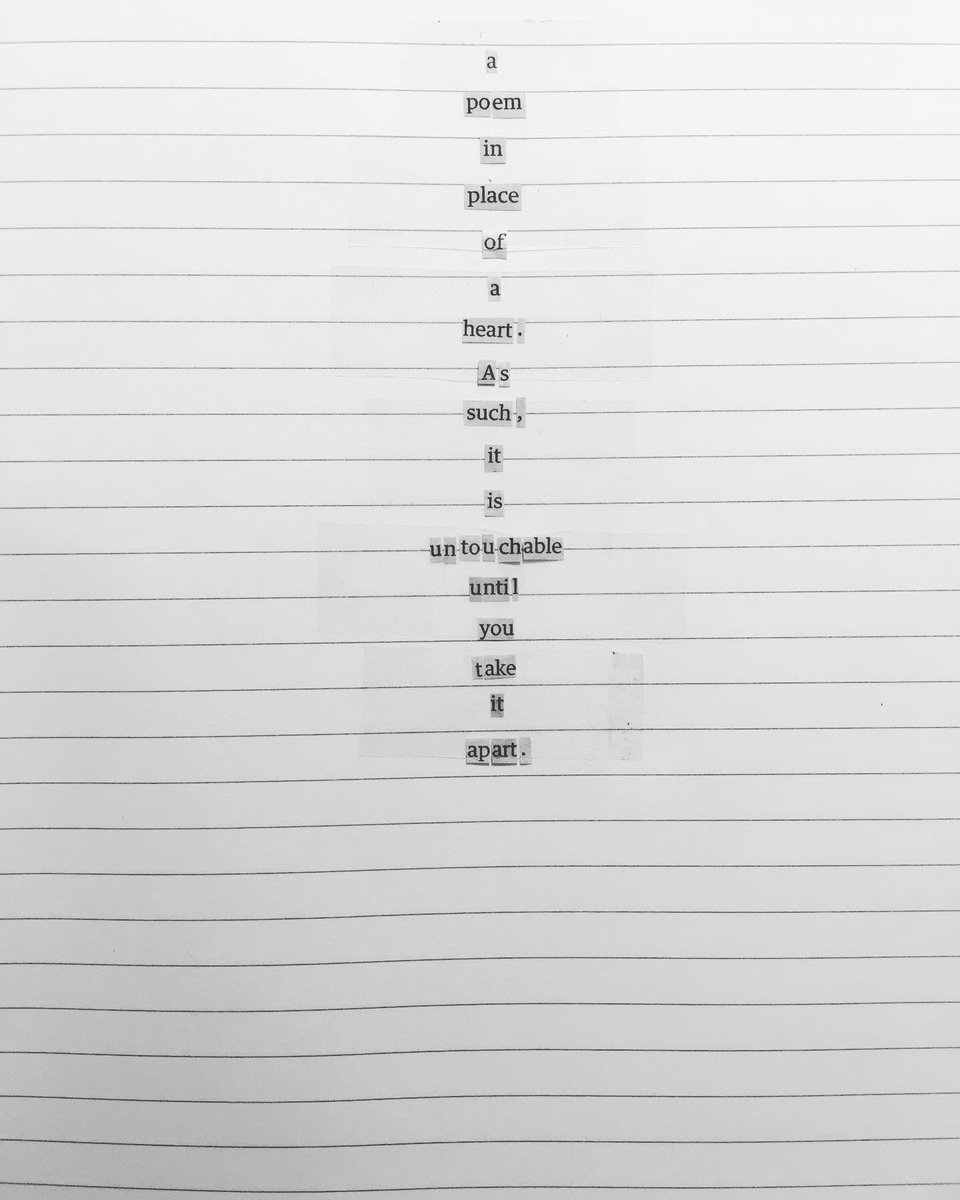 a
poem
in
place
of
a
heart.
As
such,
it
is
untouchable
until
you
take
it
apart.